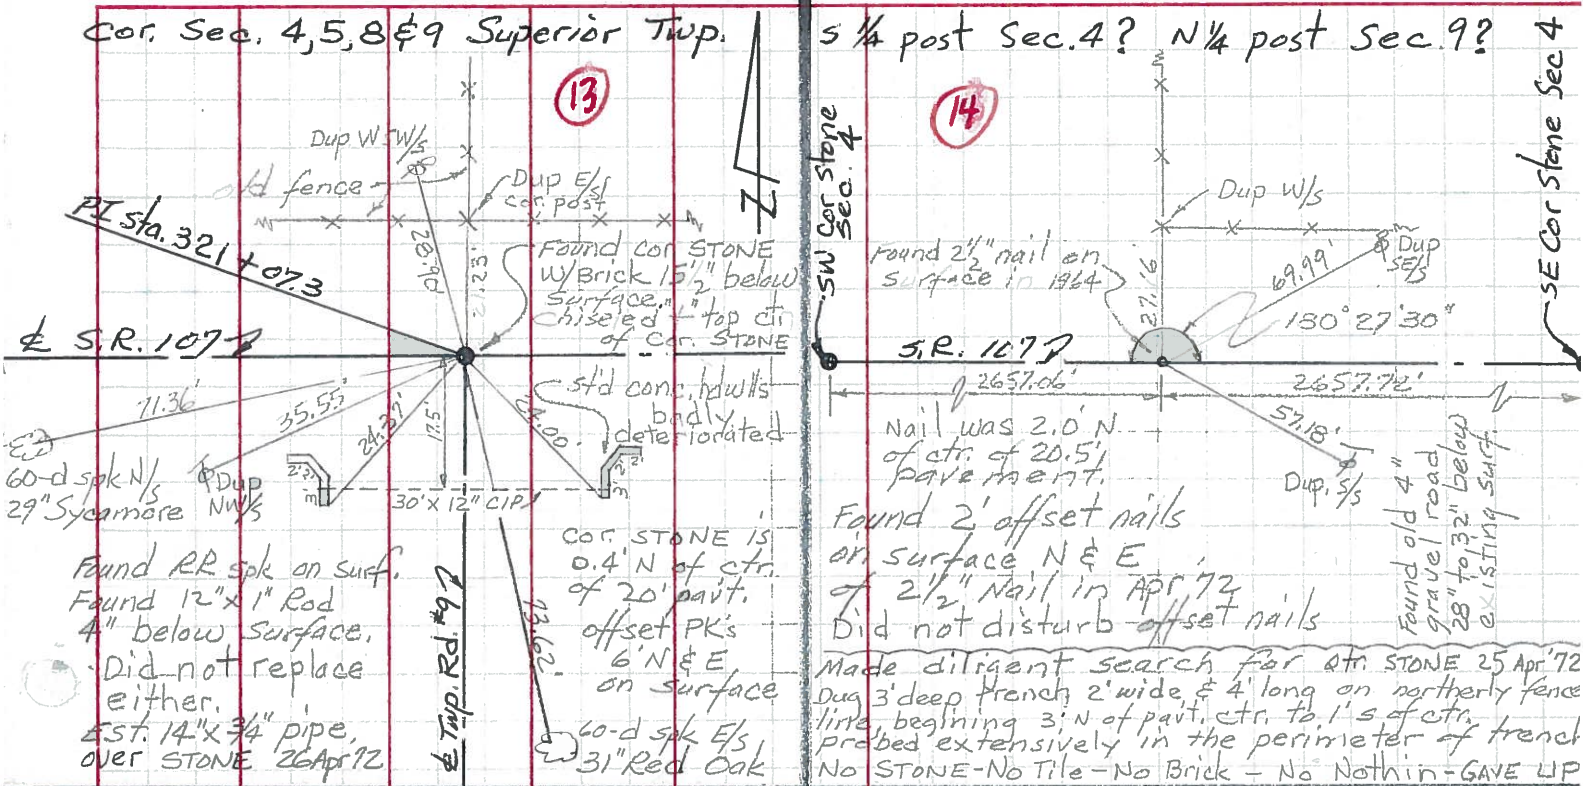 Cor. Sec. 4, 5, 8 & 9 Superior Twp.
13
Dup W/s W/s
old fence
Dup E/s
cor. post
PI sta. 321 + 07.3
28.90
21.23'
Found cor STONE
W/Brick 15½" below
surface.
chiseled "+" top ctr
of Cor. STONE
Z
℄ S.R. 107
71.36'
35.55'
24.37'
17.5'
24.00'
std conc. hdwlls
badly
deteriorated
60-d spk N/s
29" Sycamore
Dup
NW/s
2' 2' 3'
3' 2' 2'
30' x 12" CIP
Found RR spk on surf.
Found 12" x 1" Rod
4" below Surface.
Did not replace
either.
Est. 14" x ¾" pipe
over STONE 26 Apr 72
℄ Twp. Rd. #97
73.62'
Cor. STONE is
0.4' N of ctr.
of 20' pav't.
offset PK's
6' N & E
on surface
60-d spk E/s
31" Red Oak
S ¼ post Sec. 4? N ¼ post Sec. 9?
14
SW Cor Stone
Sec. 4
SE Cor Stone Sec 4
Dup W/s
Found 2½" nail on
surface in 1964
27.16'
69.99'
Dup
SE/s
180° 27' 30"
S.R. 107
2657.06'
2657.72'
57.18'
Dup. S/s
Nail was 2.0' N.
of ctr. of 20.5'
pavement.
Found 2' offset nails
on surface N & E
of 2½" Nail in Apr '72
Did not disturb offset nails
Found old 4"
gravel road
28" to 32" below
existing surf.
Made diligent search for Qtr. STONE 25 Apr '72
Dug 3' deep trench 2' wide & 4' long on northerly fence
line, begining 3' N of pav't. ctr. to 1' s of ctr.
probed extensively in the perimeter of trench
No STONE - No Tile - No Brick - No Nothin - GAVE UP